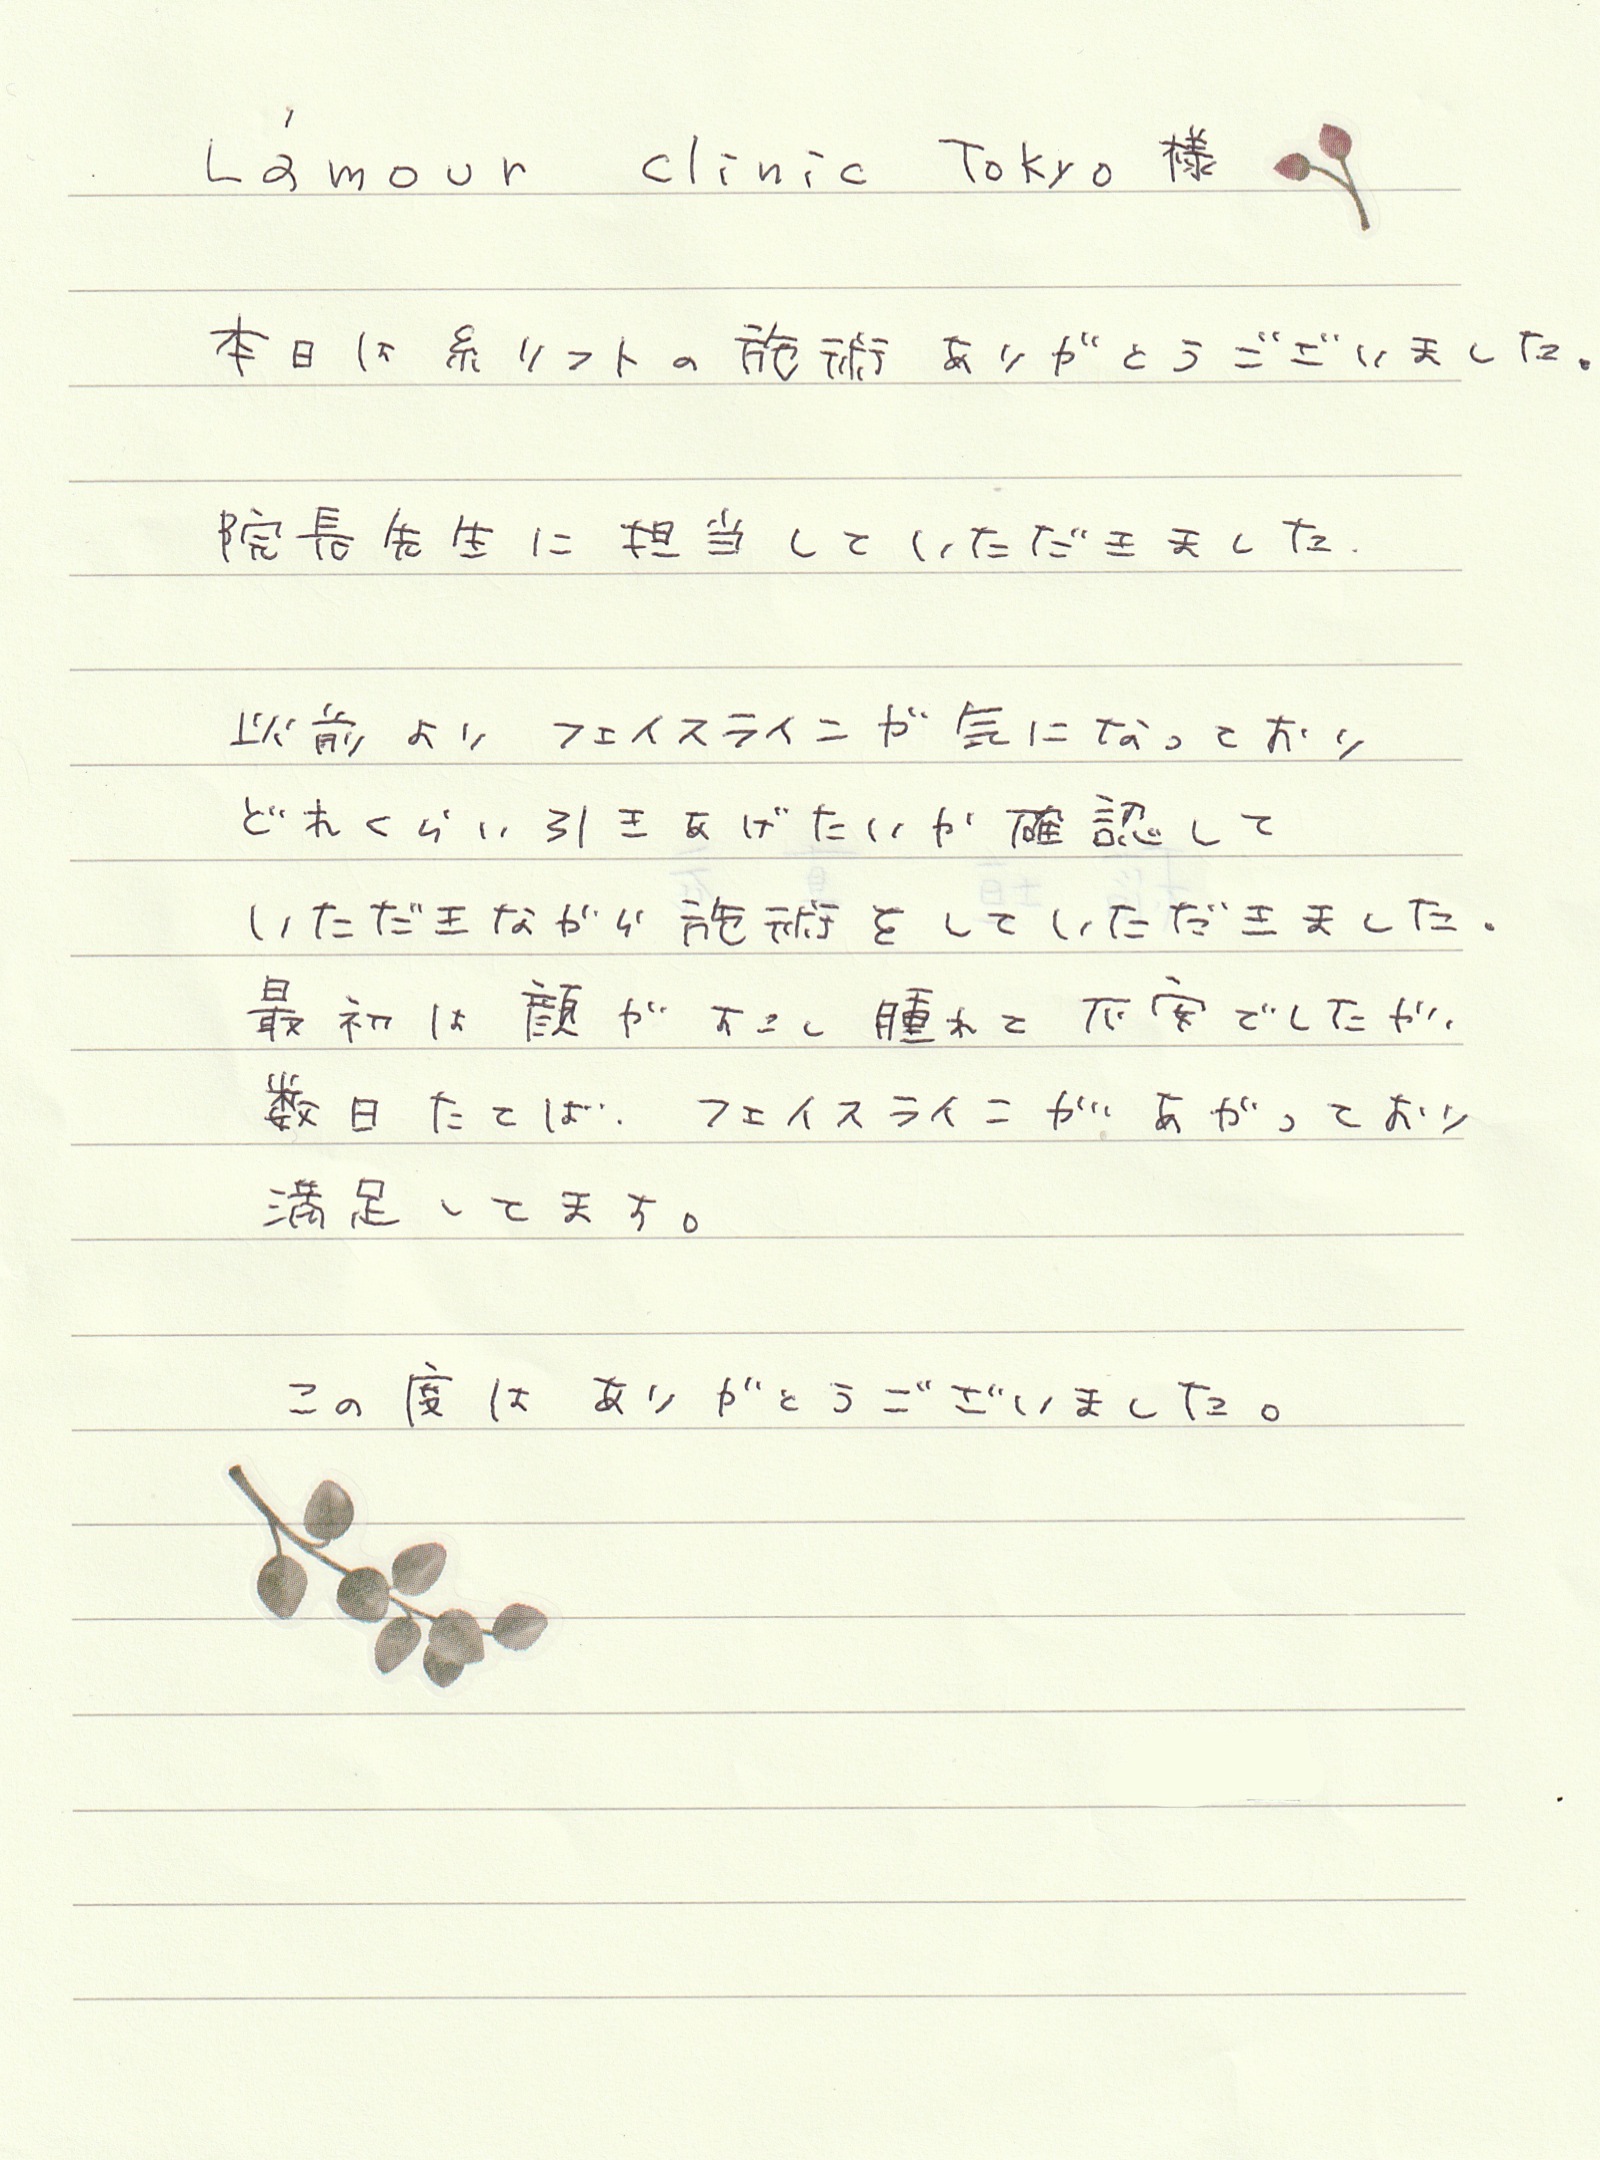 Lámour clinic Tokyo 様
本日は糸リフトの施術ありがとうございました。
院長先生に担当していただきました.
以前よりフェイスラインが気になっており
どれくらい引きあげたいか確認して
いただきながら施術をしていただきました.
最初は顔がすこし腫れて不安でしたが、
数日たてば、フェイスラインがあがっており
満足してます。
この度はありがとうございました。